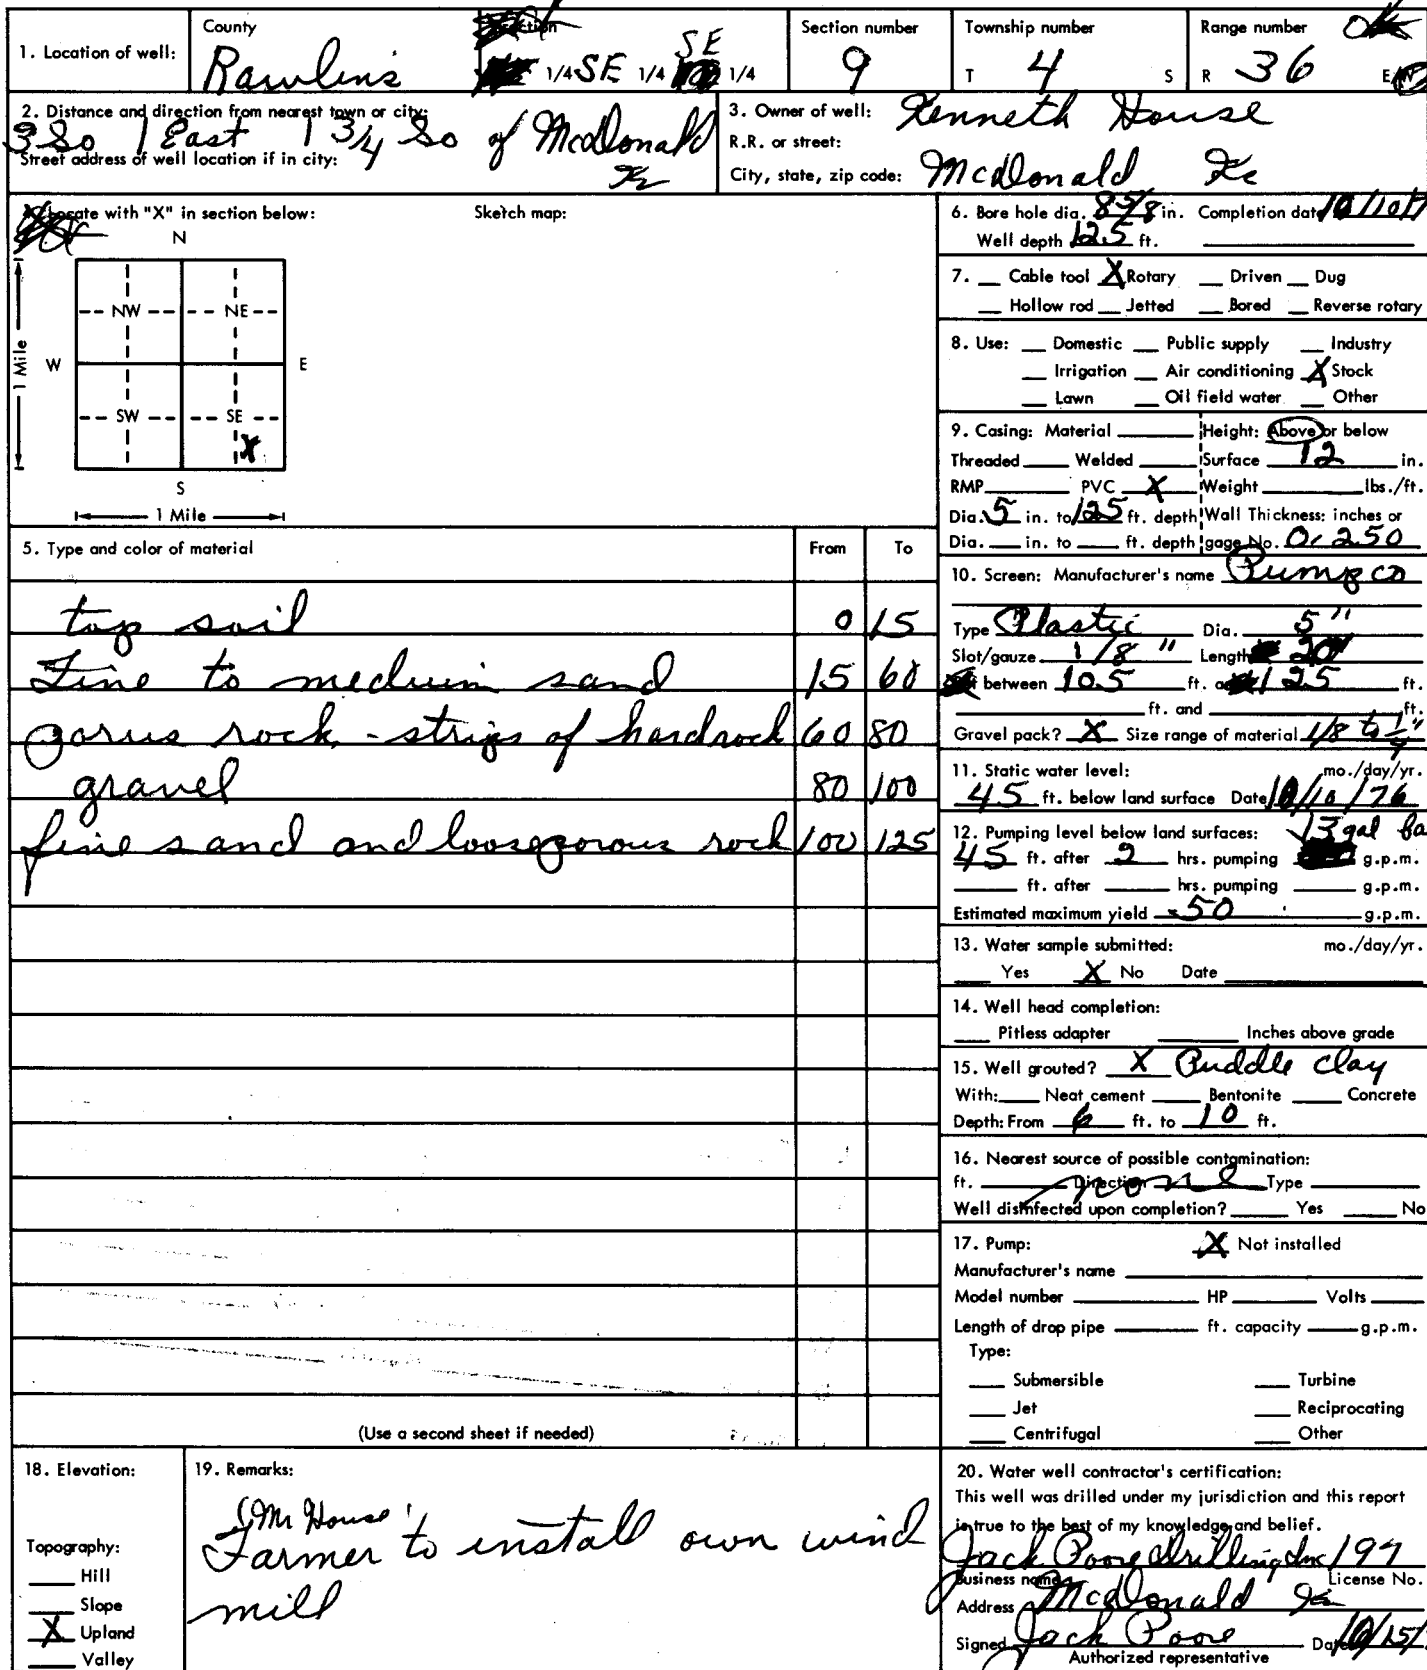 1. Location of well:
County
Rawlins
1/4 SE 1/4 SE 1/4
Section number
9
Township number
T 4 S
Range number
R 36 E/W
2. Distance and direction from nearest town or city:
3 So 1 East 1 3/4 So of McDonald
Street address of well location if in city:
Ks
3. Owner of well: Kenneth House
R.R. or street:
City, state, zip code: McDonald Ks
Locate with "X" in section below:
Sketch map:
N
NW NE
W E
1 Mile
SW SE
X
S
1 Mile
5. Type and color of material From To
top soil 0 15
Fine to medium sand 15 60
porus rock - strips of hardrock 60 80
gravel 80 100
fine sand and loose porous rock 100 125
(Use a second sheet if needed)
6. Bore hole dia. 8 5/8 in. Completion date 10/10/
Well depth 125 ft.
7. Cable tool X Rotary Driven Dug
Hollow rod Jetted Bored Reverse rotary
8. Use: Domestic Public supply Industry
Irrigation Air conditioning X Stock
Lawn Oil field water Other
9. Casing: Material Height: Above or below
Threaded Welded Surface 12 in.
RMP PVC X Weight lbs./ft.
Dia. 5 in. to 125 ft. depth Wall Thickness: inches or
Dia. in. to ft. depth gage No. 0.250
10. Screen: Manufacturer's name Pumpco
Type Plastic Dia. 5"
Slot/gauze 1/8" Length 20'
between 105 ft. and 125 ft.
ft. and ft.
Gravel pack? X Size range of material 1/8 to 1/4"
11. Static water level: mo./day/yr.
45 ft. below land surface Date 10/10/76
12. Pumping level below land surfaces: 13 gal ba
45 ft. after 2 hrs. pumping g.p.m.
ft. after hrs. pumping g.p.m.
Estimated maximum yield 50 g.p.m.
13. Water sample submitted: mo./day/yr.
Yes X No Date
14. Well head completion:
Pitless adapter Inches above grade
15. Well grouted? X Puddle clay
With: Neat cement Bentonite Concrete
Depth: From 6 ft. to 10 ft.
16. Nearest source of possible contamination:
ft. Direction none Type
Well disinfected upon completion? Yes No
17. Pump: X Not installed
Manufacturer's name
Model number HP Volts
Length of drop pipe ft. capacity g.p.m.
Type:
Submersible Turbine
Jet Reciprocating
Centrifugal Other
18. Elevation:
Topography:
Hill
Slope
X Upland
Valley
19. Remarks:
(Mr House)
Farmer to install own wind
mill
20. Water well contractor's certification:
This well was drilled under my jurisdiction and this report
is true to the best of my knowledge and belief.
Jack Poore Drilling Inc 197
Business name License No.
Address McDonald Ks
Signed Jack Poore Date 10/15/
Authorized representative